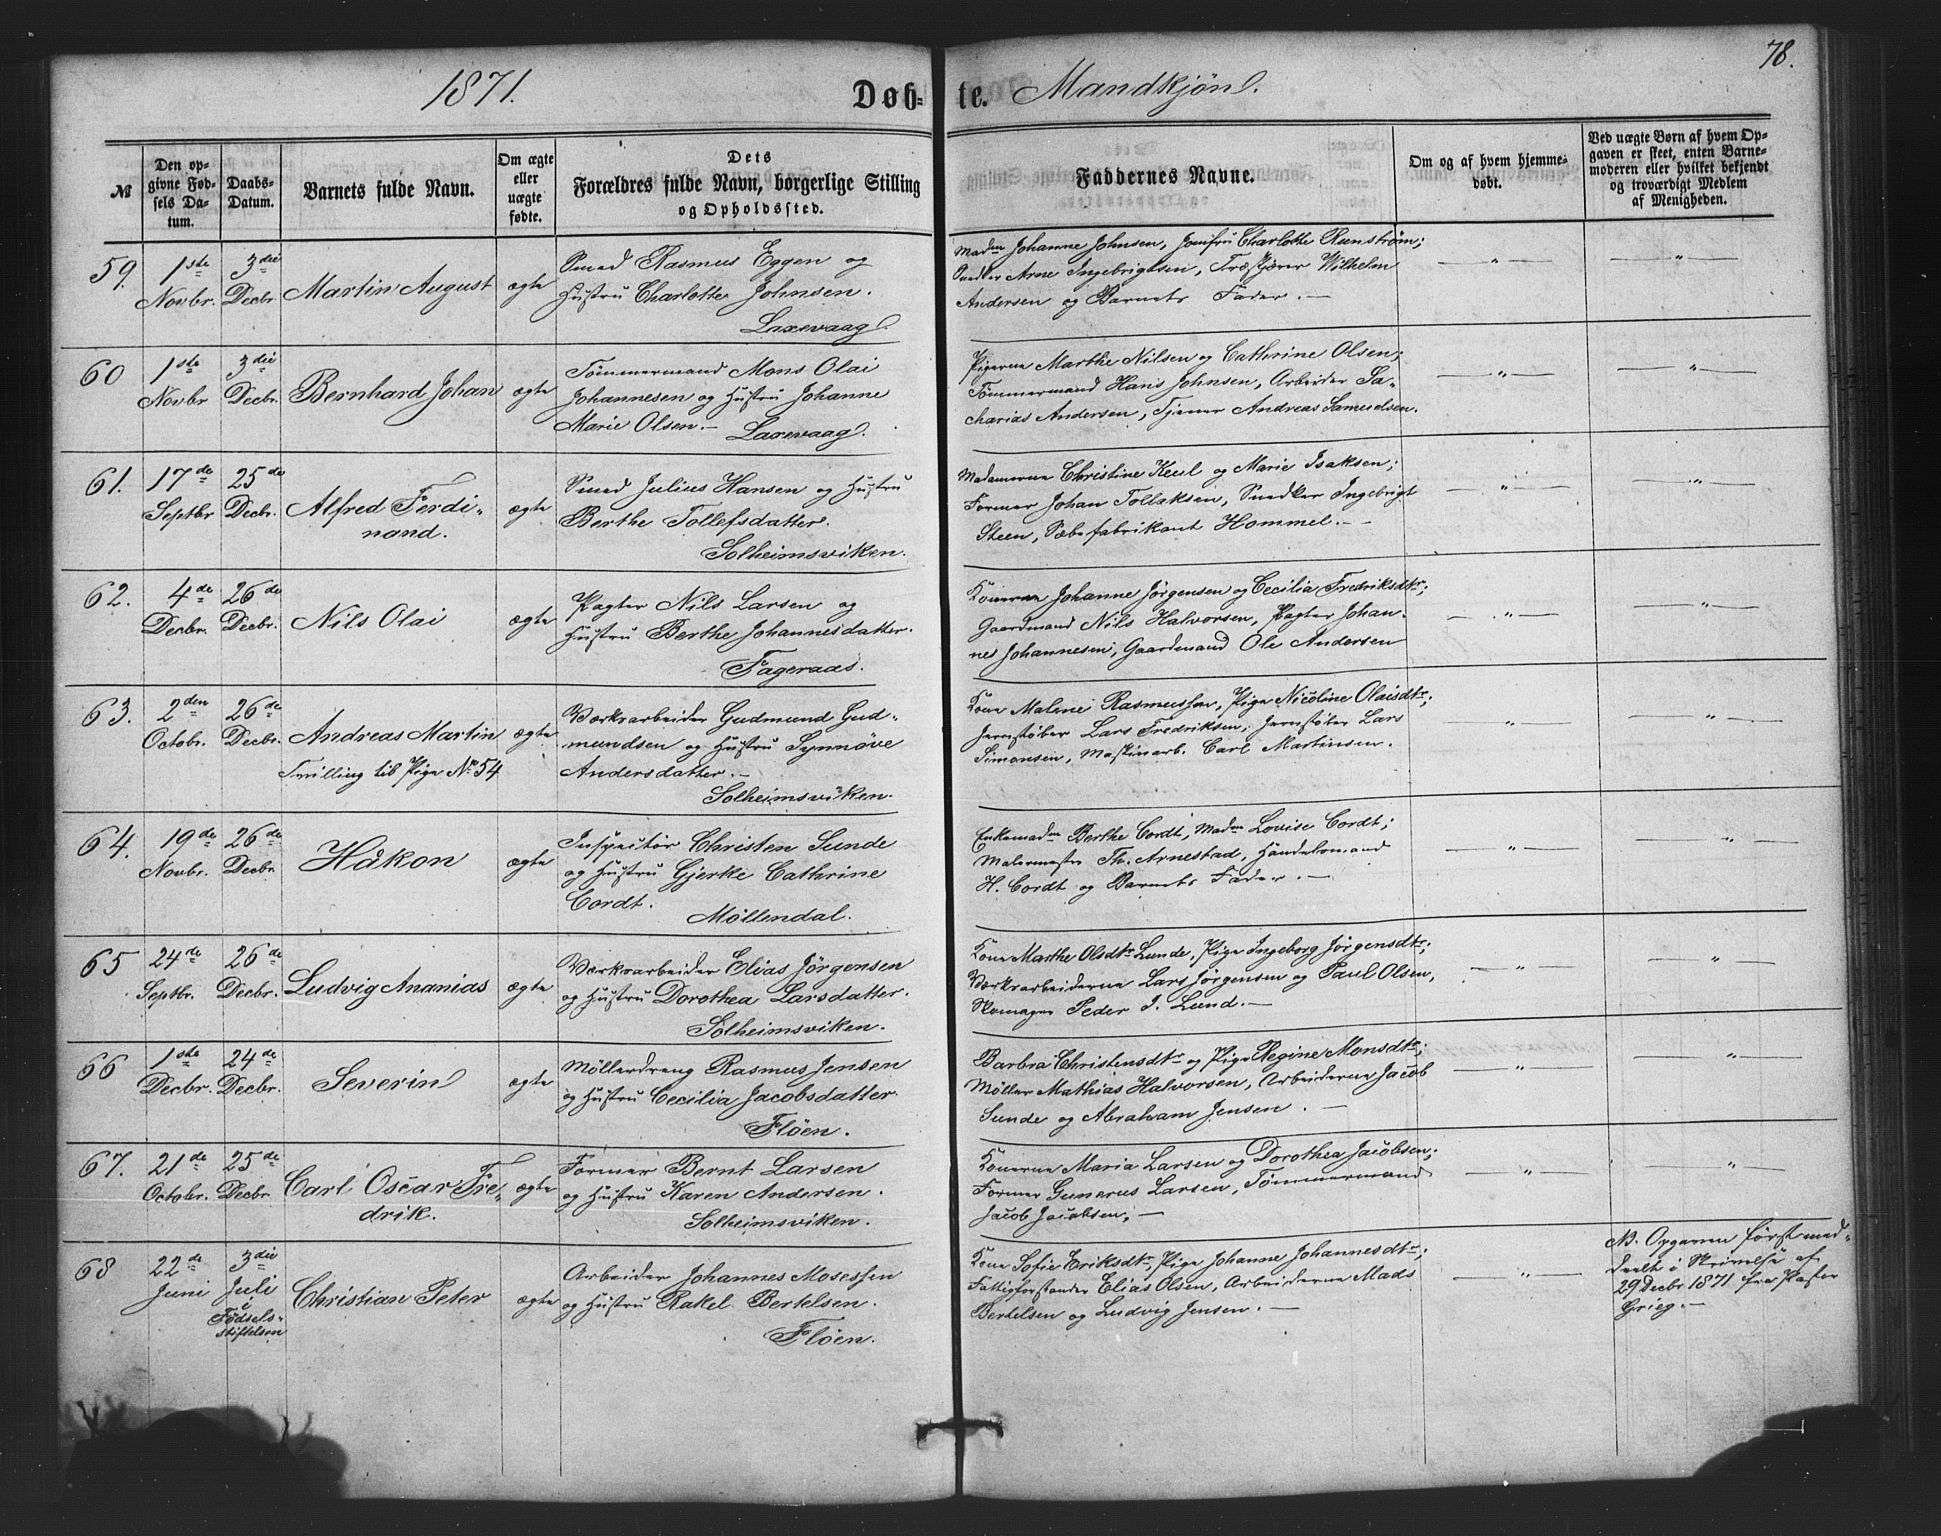 1871.
Døb-te. Mandkjøn.
78.
№
Den opgivne Fødsels Datum.
Daabs-Datum.
Barnets fulde Navn.
Om ægte eller uægte fødte.
Dets Forældres fulde Navn, borgerlige Stilling og Opholdssted.
Faddernes Navne.
Om og af hvem hjemmedøbt.
Ved uægte Børn af hvem Opgaven er skeet, enten Barnemoderen eller hvilket bekjendt og troværdigt Medlem af Menigheden.
59. 1ste Novbr. 3die Decbr. Martin August ægte
Smed Rasmus Eggen og
Hustru Charlotte Johnsen.
Laxevaag.
Madm Johanne Johnsen, Jomfru Charlotte Runström;
Snedker Arne Ingebrigtsen, Træskjærer Wilhelm
Andersen og Barnets Fader. —
— " — — " —
60 1ste Novbr 3die Decbr. Bernhard Johan ægte
Tømmermand Mons Olai
Johannesen og Hustru Johanne
Marie Olsen. — Laxevaag.
Pigerne Marthe Nilsen og Cathrine Olsen;
Tømmermand Hans Johnsen, Arbeider Sa-
charias Andersen, Tjener Andreas Samuelsen.
— " — — " —
61. 17de Septbr 25de Decbr. Alfred Ferdi-
nand. ægte
Smed Julius Hansen og Hustru
Berthe Tollefsdatter.
Solheimsviken.
Madamerne Christine Keul og Marie Isaksen;
Former Johan Tollaksen, Snedker Ingebrigt
Steen, Sæbefabrikant Hommel. —
— " — — " —
62. 4de Decbr. 26de Decbr. Nils Olai ægte
Pagter Nils Larsen og
Hustru Berthe Johannesdatter.
Fageraas.
Konerne Johanne Jørgensen og Cecilia Fredriksdtr;
Gaardmand Nils Halvorsen, Pagter Johan-
nes Johannesen, Gaardmand Ole Andersen
— " — — " —
63. 2den Octobr. 26de Decbr. Andreas Martin ægte
Tvilling til Pige No 54
Værksarbeider Gudmund Gud-
mundsen og Hustru Synnøve
Andersdatter. —
Solheimsviken.
Kone Malene Rasmussen, Pige Nicoline Olaisdtr;
Jernstøber Lars Fredriksen, Jernstøber Lars
Simonsen, Maskinarb. Carl Martinsen.
— " — — " —
64. 19de Novbr. 26de Decbr Håkon ægte
Inspectør Christen Sunde
og Hustru Gjerke Cathrine
Cordt. Møllendal.
Enkemadm Berthe Cordt, Madm Lovise Cordt;
Malermester Th. Arnestad, Handelsmand
H. Cordt og Barnets Fader. —
— " — — " —
65 24de Septbr. 26de Decbr. Ludvig Ananias ægte
Værksarbeider Elias Jørgensen
og Hustru Dorothea Larsdatter.
Solheimsviken.
Kone Marthe Olsdtr Lunde, Pige Ingeborg Jørgensdtr;
Værksarbeiderne Lars Jørgensen og Paul Olsen,
Skomager Peder J. Lund. —
— " — — " —
66 1ste Decbr. 24de Decbr. Severin ægte
Møllerdreng Rasmus Jensen
og Hustru Cecilia Jacobsdatter.
Fløen.
Barbra Christensdtr og Pige Regine Monsdtr;
Møller Mathias Halvorsen, Arbeiderne Jacob
Sunde og Abraham Jensen. —
— " — — " —
67. 21de Octobr. 25de Decbr Carl Oscar Fre-
drik. ægte
Former Bernt Larsen
og Hustru Karen Andersen.
Solheimsviken.
Konerne Maria Larsen og Dorothea Jacobsen;
Former Gunerus Larsen, Tømmermand
Jacob Jacobsen. —
— " — — " —
68 22de Juni 3die Juli Fødselsstiftelsen Christian Peter ægte
Arbeider Johannes Mosessen
og Hustru Rakel Bertelsen.
Fløen.
Kone Sofie Eriksdtr, Pige Johanne Johannesdtr;
Fattigforstander Elias Olsen, Arbeiderne Mads
Bertelsen og Ludvig Jensen. —
— " —
NB. Opgaven først med-
deelt i Skrivelse af
29 Decbr 1871 fra Pastor
Grieg. —